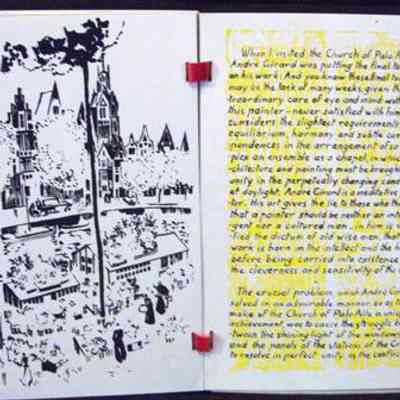 When I visited the Church of Palo A
André Girard was putting the final to
on his work; And you know these final to
may be the task of many weeks, given th
traordinary care of eye and mind with
this painter - never satisfied with him
considers the slightest requirements
equilibrium, harmony and subtle cor
pondences in the arrangement of su
plex an ensemble as a chapel, in wh
chitecture and painting must be broug
unity in the perpetually changing con
of daylight. André Girard is an
tor. His art gives the lie to those who th
that a painter should be neither an int
gent nor a cultured man. In him is
fied the dictum of old wise men that the
work is born in the intellect and the
before being carried into existence
the cleverness and sensitivity of the
The crucial problem and André G
solved in an admirable manner, so as to
make of the Church of Palo Alto a uni
achievement, was to cause the struggle
tween the shining light of the windows
and the panels of the stations of the Cr
to resolve in perfect unity as the contin